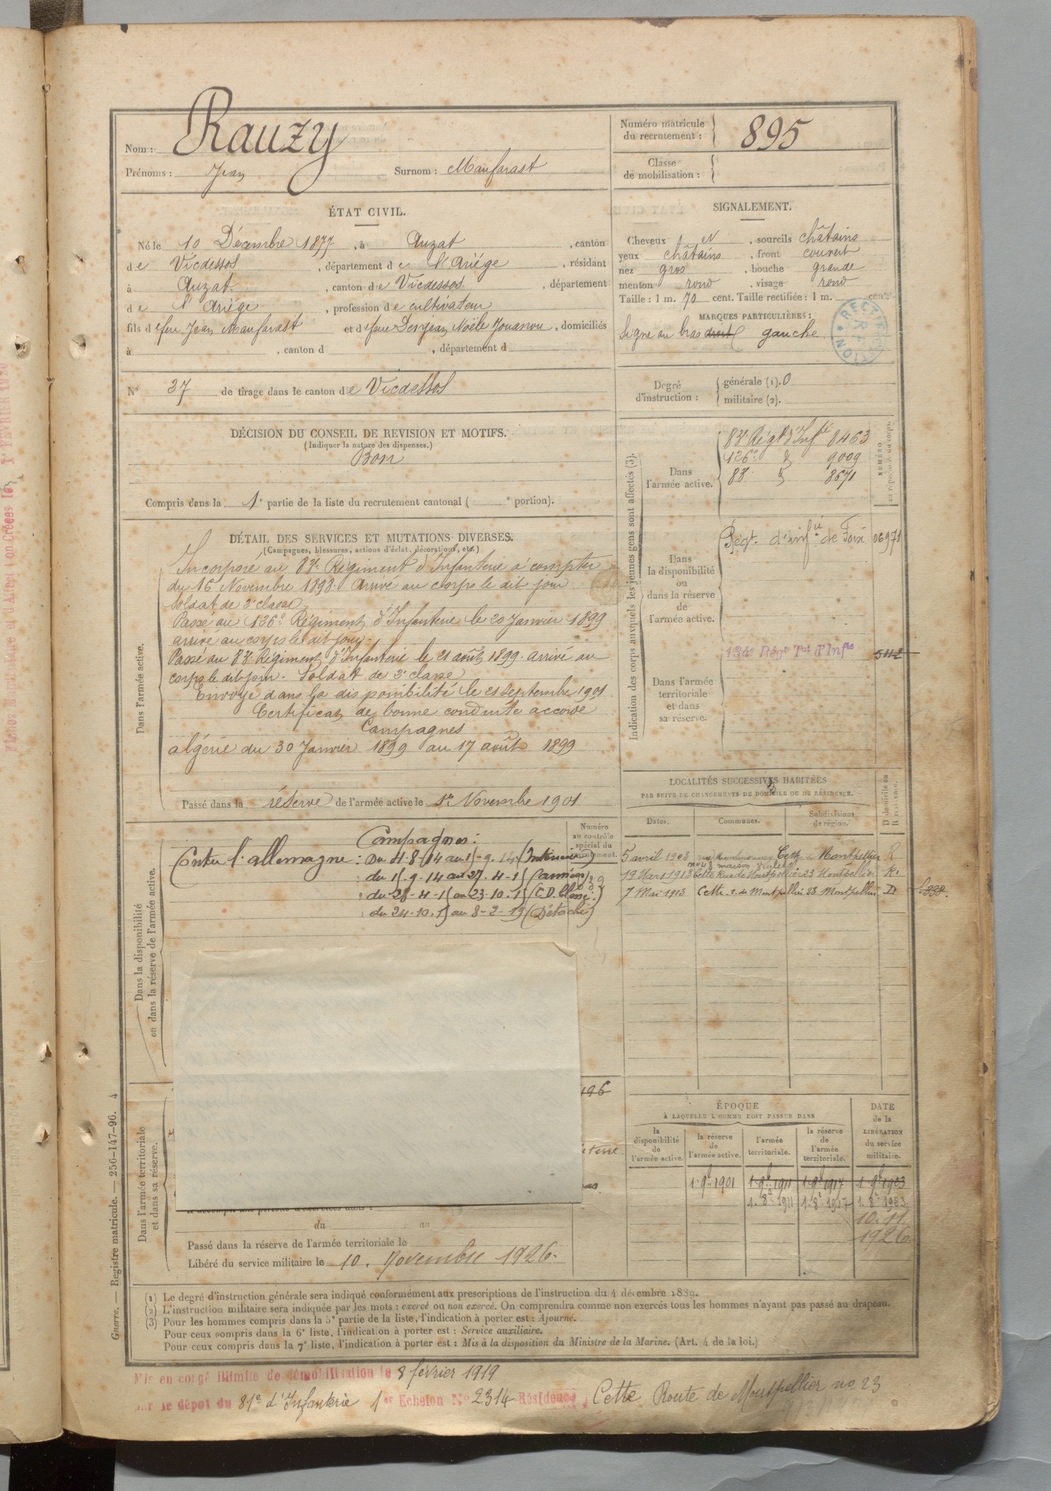 Nom : Rauzy
Prénoms : Jean Surnom : Manfarast
Numéro matricule du recrutement : 895
Classe de mobilisation :
ÉTAT CIVIL.
Né le 10 Décembre 1877, à Auzat, canton
de Vicdessos, département de l'Ariége, résidant
à Auzat, canton de Vicdessos, département
de l'Ariége, profession de cultivateur
fils de feu Jean Manfarast et de feue Desjean Noële Jouanou, domiciliés
à , canton d , département d
SIGNALEMENT.
Cheveux , sourcils châtains
yeux châtains, front couvert
nez gros, bouche grande
menton rond, visage rond
Taille : 1 m. 70 cent. Taille rectifiée : 1 m. cent.
MARQUES PARTICULIÈRES :
Signe au bras droit gauche
N° 37 de tirage dans le canton de Vicdessos
Degré d'instruction : générale (1). 0
militaire (2).
DÉCISION DU CONSEIL DE REVISION ET MOTIFS.
(Indiquer la nature des dispenses.)
Bon
Compris dans la 1e partie de la liste du recrutement cantonal ( e portion).
DÉTAIL DES SERVICES ET MUTATIONS DIVERSES.
(Campagnes, blessures, actions d'éclat, décorations, etc.)
Dans l'armée active.
Incorporé au 83e Régiment d'Infanterie à compter
du 16 Novembre 1898. Arrivé au corps le dit jour
Soldat de 2e classe
Passé au 126e Régiment d'Infanterie le 20 Janvier 1899
arrivé au corps le dit jour.
Passé au 83e Régiment d'Infanterie le 21 août 1899. arrivé au
corps le dit jour. Soldat de 2e classe
Envoyé dans la disponibilité le 21 Septembre 1901
Certificat de bonne conduite accordé
Campagnes
algérie du 30 Janvier 1899 au 17 août 1899
Passé dans la réserve de l'armée active le 1er Novembre 1901
Indication des corps auxquels les jeunes gens sont affectés (3).
Dans l'armée active.
83e Régt d'Infie 8463
126e 9009
83e 8671
Dans la disponibilité ou dans la réserve de l'armée active.
Régt. d'infie de Foix 06971
Dans l'armée territoriale et dans sa réserve.
Régt Tal d'Infie 5112
LOCALITÉS SUCCESSIVES HABITÉES
PAR SUITE DE CHANGEMENTS DE DOMICILE OU DE RÉSIDENCE.
Dates. Communes. Subdivisions de région.
5 avril 1903 Cette Montpellier R
19 Mars 1913 Cette Rue de Montpellier 23 Montpellier R.
7 Mai 1913 Cette r. de Montpellier 23 Montpellier D
Dans la disponibilité ou dans la réserve de l'armée active.
Campagnes :
Contre l'allemagne : Du 4-8-14 au 1-9-14 (Intérieur)
du 1-9-14 au 27-4-1 (armées)
du 28-4-1 au 23-10-1
du 24-10-1 au 8-2-19 (Détaché)
Numéro au contrôle spécial du recrutement.
Dans l'armée territoriale et dans sa réserve.
du au
Passé dans la réserve de l'armée territoriale le
Libéré du service militaire le 10. Novembre 1926.
ÉPOQUE
À LAQUELLE L'HOMME DOIT PASSER DANS
DATE de la LIBÉRATION du service militaire.
la disponibilité de l'armée active. la réserve de l'armée active. l'armée territoriale. la réserve de l'armée territoriale.
1. 9bre 1901 1. 9bre 1911 1. 9bre 1917 1. 9bre 1923
1. 8bre 1911 1. 8bre 1917 1. 8bre 1923
10. 11
1926
(1) Le degré d'instruction générale sera indiqué conformément aux prescriptions de l'instruction du 4 décembre 1889.
(2) L'instruction militaire sera indiquée par les mots : exercé ou non exercé. On comprendra comme non exercés tous les hommes n'ayant pas passé au drapeau.
(3) Pour les hommes compris dans la 5e partie de la liste, l'indication à porter est : Ajourné.
Pour ceux compris dans la 6e liste, l'indication à porter est : Service auxiliaire.
Pour ceux compris dans la 7e liste, l'indication à porter est : Mis à la disposition du Ministre de la Marine. (Art. 4 de la loi.)
Guerre. — Registre matricule. — 256-147-96. 4
Mis en congé illimité de démobilisation le 8 février 1919
par le dépôt du 81e d'Infanterie 1er Echelon No 2314 Résidence, Cette, Route de Montpellier no 23